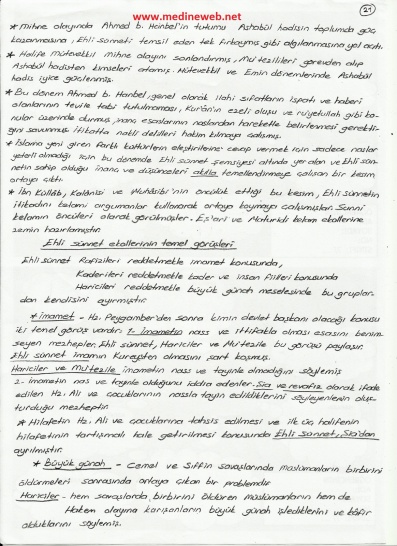 www.medineweb.net
21
* Mihne olayında Ahmed b. Hanbel'in tutumu Ashabül hadisin toplumda güç
kazanmasına, Ehli sünneti temsil eden tek fırkaymış gibi algılanmasına yol açtı.
* Halife Mütevekkil mihne olayını sonlandırmış, Mu'tezilileri görevden alıp
Ashabül hadisten kimseleri atamış. Mütevekkil ve Emin dönemlerinde Ashabül
hadis iyice güçlenmiş.
* Bu dönem Ahmed b. Hanbel, genel olarak ilahi sıfatların ispatı ve haberi
olanlarının tevile tabi tutulmaması, Kur'ânın ezeli oluşu ve ru'yetullah gibi ko-
nular üzerinde durmuş, inanç esaslarının naslardan hareketle belirlenmesi gerekti-
ğini savunmuş itikatta nakli delilleri hakim kılmaya çalışmış.
* İslama yeni giren farklı kültürlerin eleştirilerine cevap vermek için sadece naslar
yeterli olmadığı için bu dönemde Ehli sünnet şemsiyesi altında yer alan ve Ehli sün-
netin sahip olduğu inanç ve düşünceleri akılla temellendirmeye çalışan bir kesim
ortaya çıktı
* İbn Küllâb, Kalânisi ve Muhâsibi'nin öncülük ettiği bu kesim, Ehli sünnetin
itikadını kelami argumanlar kullanarak ortaya koymaya çalışmışlar. Sünni
kelamın öncüleri olarak görülmüşler. Eş'ari ve Maturidi kelam ekollerine
zemin hazırlamıştır.
Ehli sünnet ekollerinin temel görüşleri
Ehli sünnet Rafizileri reddetmekle imamet konusunda,
Kaderileri reddetmekle kader ve insan fiilleri konusunda
Haricileri reddetmekle büyük günah meselesinde bu gruplar-
dan kendisini ayırmıştır.
* İmamet - Hz. Peygamber'den sonra kimin devlet başkanı olacağı konusu
iki temel görüş vardır: 1- İmametin nass ve ittifakla olması esasını benim-
seyen mezhepler, Ehli sünnet, Hariciler ve Mu'tezile bu görüşü paylaşır.
Ehli sünnet imamın Kureyşten olmasını şart koşmuş.
Hariciler ve Mu'tezile imametin nass ve tayinle olmadığını söylemiş
2- İmametin nas ve tayinle olduğunu iddia edenler. Şia ve revafız olarak ifade
edilen Hz. Ali ve çocuklarının nassla tayin edildiklerini söyleyenlerin oluş-
turduğu mezheptir.
* Hilafetin Hz. Ali ve çocuklarına tahsis edilmesi ve ilk üç halifenin
hilafetinin tartışmalı hale getirilmesi konusunda Ehli sünnet, Şia'dan
ayrılmıştır.
* Büyük günah - Cemel ve Sıffin savaşlarında müslümanların birbirini
öldürmeleri sonrasında ortaya çıkan bir problemdir
Hariciler - hem savaşlarda birbirini öldüren müslümanların hem de
Hakem olayına karışanların büyük günah işlediklerini ve kâfir
olduklarını söylemiş.